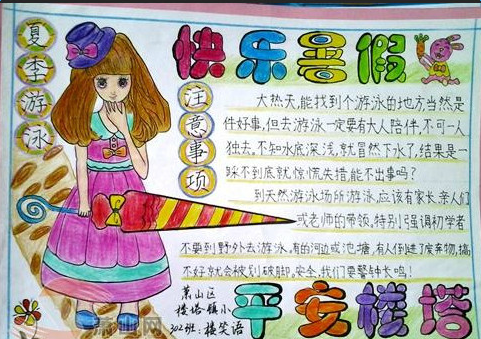 快乐暑假
夏季游泳
注意事项
大热天,能找到个游泳的地方当然是
件好事,但去游泳一定要有大人陪伴,不可一人
独去。不知水底深浅,就冒然下水了,结果是一
踩不到底就惊慌失措,能不出事吗?
到天然游泳场所游泳,应该有家长、亲人们
或老师的带领,特别强调初学者
不要到野外去游泳,有的河边或池塘,有人仍进了废弃物,搞
不好就会被划破脚,安全,我们要警钟长鸣!
萧山区
楼塔镇小
302班:楼笑语
平安楼塔